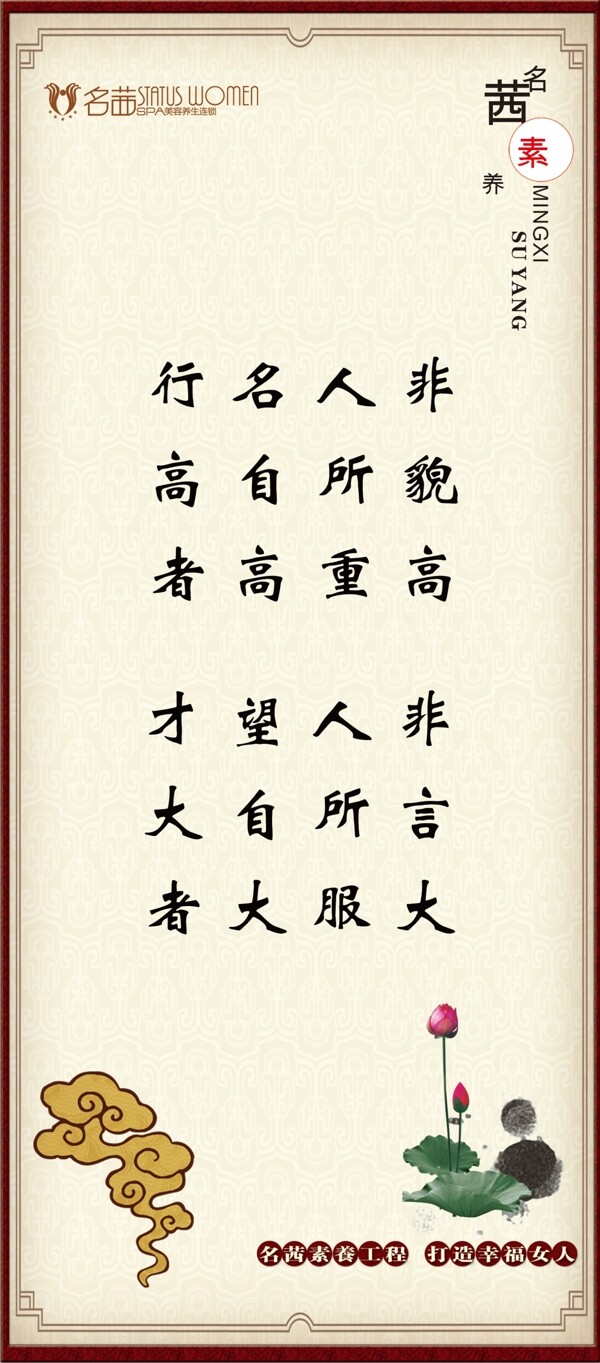 名茜STATUS WOMEN
SPA美容养生连锁
名茜素养
MINGXI
SU YANG
行高者
名自高
人所重
非貌高
才大者
望自大
人所服
非言大
名茜素養工程 打造幸福女人